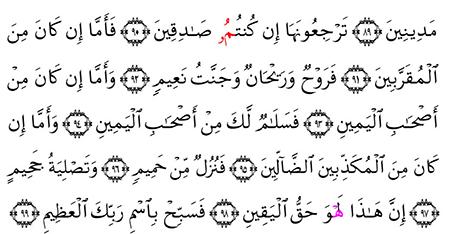 مَدِينِينَ ﴿٨٩﴾ تَرْجِعُونَهَا إِن كُنتُمُۥ صَٰدِقِينَ ﴿٩٠﴾ فَأَمَّا إِن كَانَ مِنَ
ٱلْمُقَرَّبِينَ ﴿٩١﴾ فَرَوْحٌ وَرَيْحَانٌ وَجَنَّتُ نَعِيمٍ ﴿٩٢﴾ وَأَمَّا إِن كَانَ مِنْ
أَصْحَٰبِ ٱلْيَمِينِ ﴿٩٣﴾ فَسَلَٰمٌ لَّكَ مِنْ أَصْحَٰبِ ٱلْيَمِينِ ﴿٩٤﴾ وَأَمَّا إِن
كَانَ مِنَ ٱلْمُكَذِّبِينَ ٱلضَّآلِّينَ ﴿٩٥﴾ فَنُزُلٌ مِّنْ حَمِيمٍ ﴿٩٦﴾ وَتَصْلِيَةُ جَحِيمٍ
﴿٩٧﴾ إِنَّ هَٰذَا لَهْوَ حَقُّ ٱلْيَقِينِ ﴿٩٨﴾ فَسَبِّحْ بِٱسْمِ رَبِّكَ ٱلْعَظِيمِ ﴿٩٩﴾